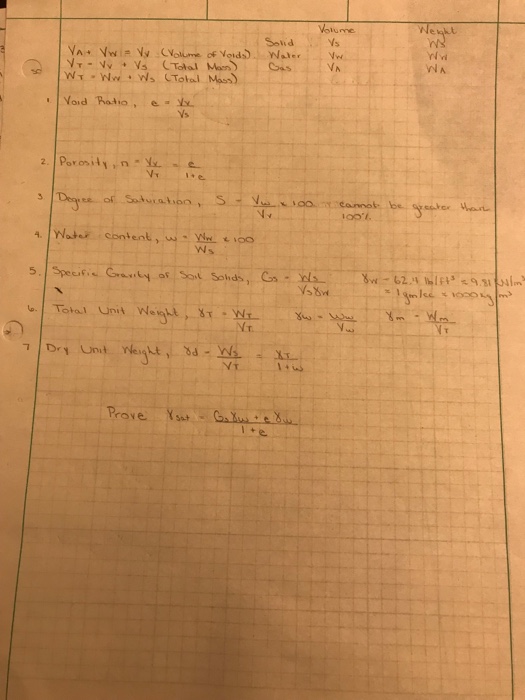 Volume Weight
Solid Vs Ws
VA + Vw = Vv (Volume of Voids) Water Vw Ww
VT = Vv + Vs (Total Mass) Gas VA WA
WT = Ww + Ws (Total Mass)
1 Void Ratio, e = Vv/Vs
2. Porosity, n = Vv/VT = e/1+e
3 Degree of Saturation, S = Vw/Vv x 100 cannot be greater than 100%
4. Water content, w = Ww/Ws x 100
5. Specific Gravity of Soil Solids, Gs = Ws/Vsγw γw = 62.4 lb/ft³ = 9.81 kN/m³
= 1 gm/cc = 1000 kg/m³
6. Total Unit Weight, γT = WT/VT γw = Ww/Vw γm = Wm/VT
7 Dry Unit Weight, γd = Ws/VT = γT/1+w
Prove γsat = Gsγw + eγw/1+e